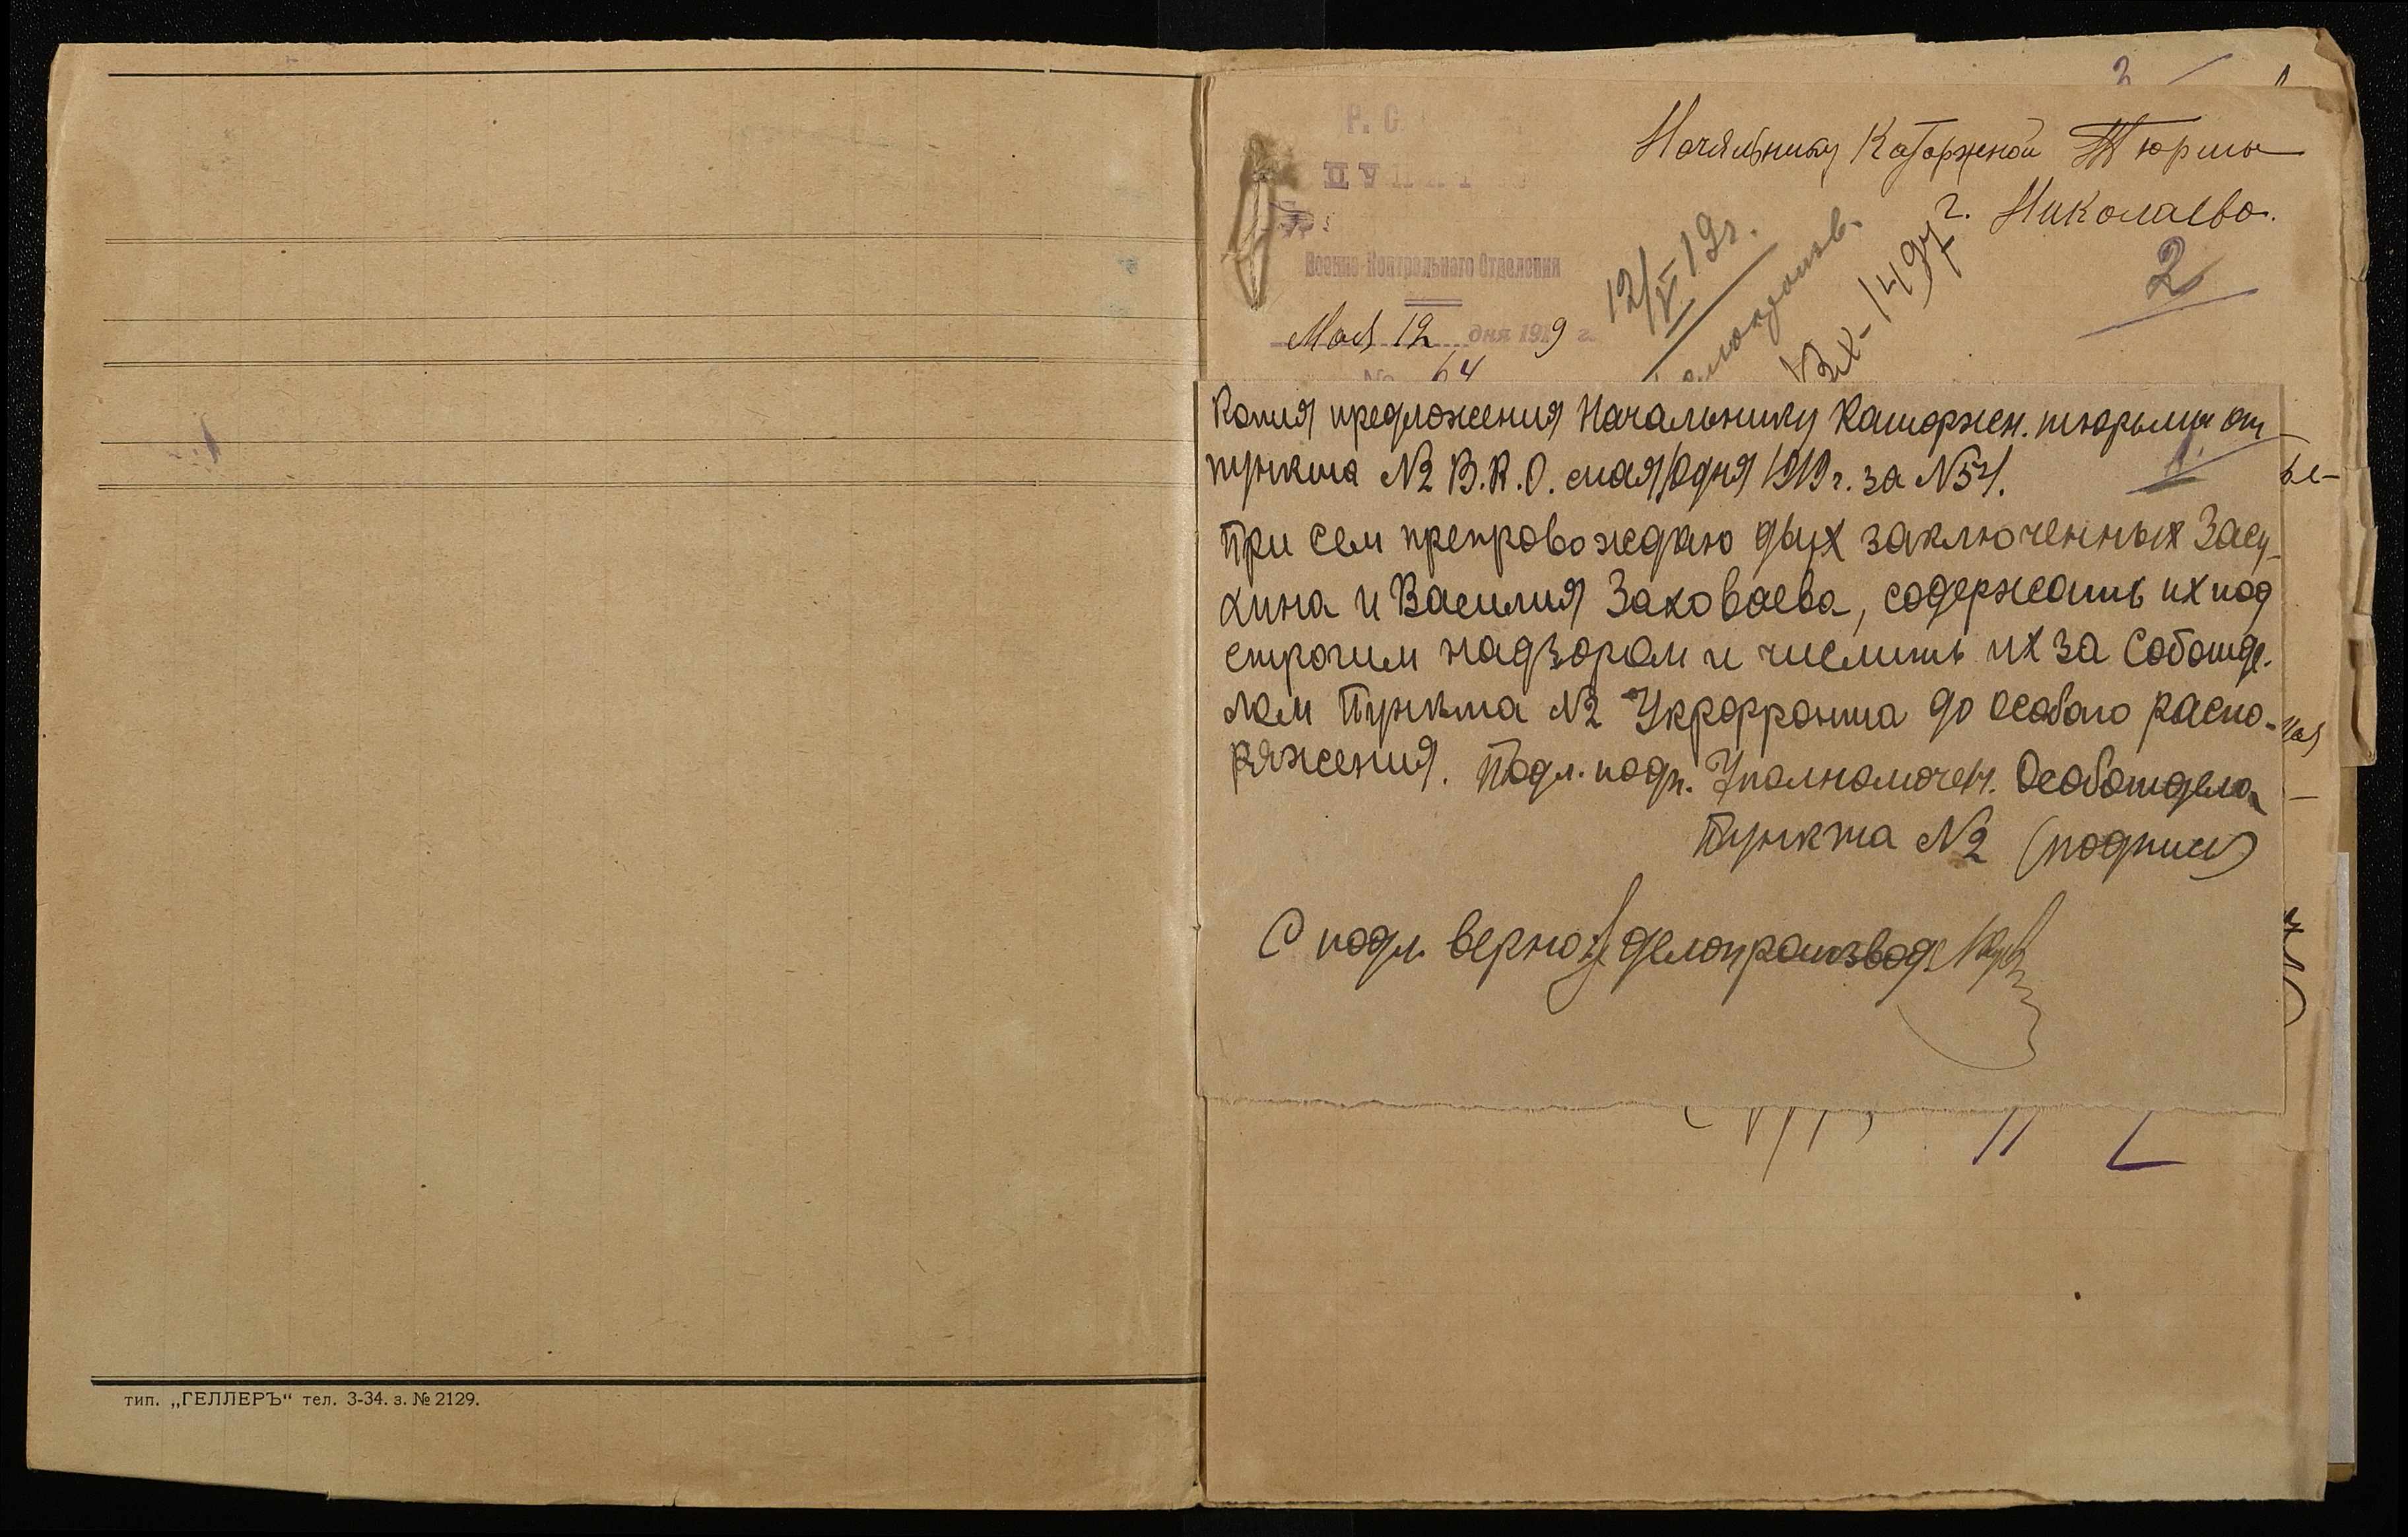 тип. „ГЕЛЛЕРЪ“ тел. 3-34. з. № 2129.
2
Р. С.
Начальнику Каторжной Тюрмы
г. Николаева.
2
Военно-Контрольного Отделения
Мая 12 дня 1919 г.
№ 64
12/V 19г.
Вх-1497
Копия предложения Начальнику Каторжен. тюрьмы от
пункта №2 В.К.О. мая 10 дня 1919 г. за №54.
1.
При сем препровождаю двух заключенных Засу-
хина и Василия Заковаева, содержать их под
строгим надзором и числить их за Соботде-
лом Пункта №2 Укрфронта до особого распо-
ряжения. Подл. подп. Уполномочен. Особотдела
Пункта №2 (подпись)
С подл. верно: делопроизвод.